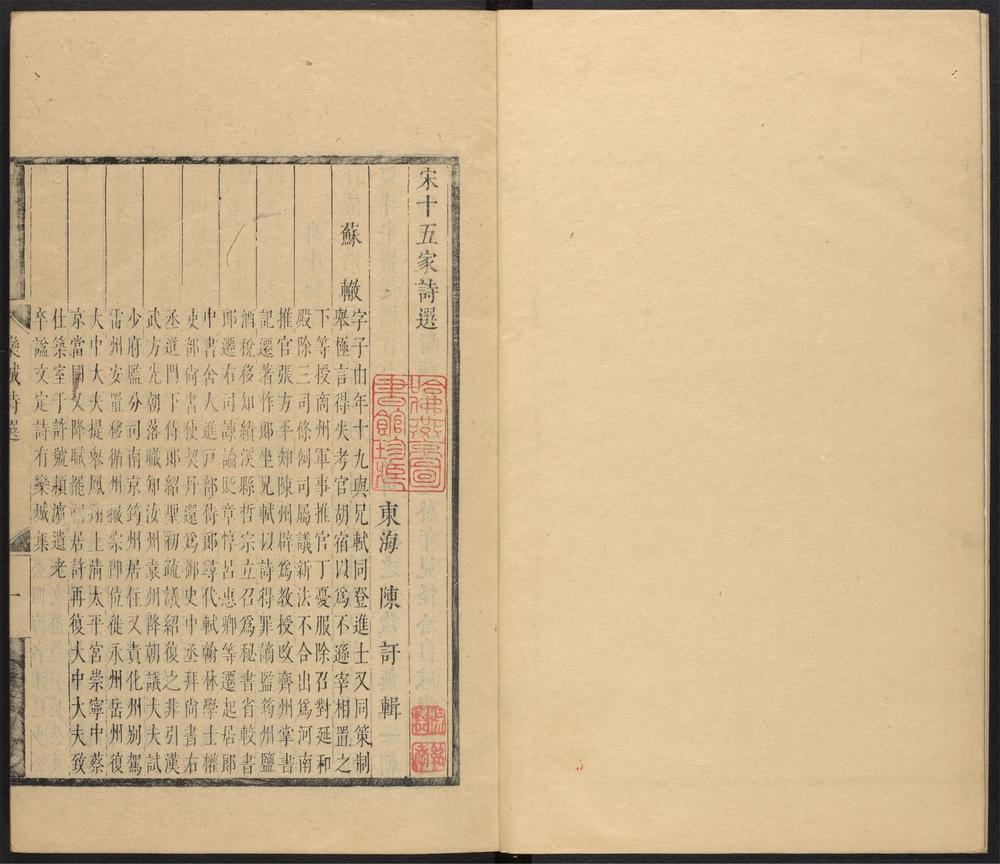 宋十五家詩選
東海陳訏輯
蘇轍
字子由年十九與兄軾同登進士又同策制
舉極言得失考官胡宿以爲不遜宰相置之
下等授商州軍事推官丁憂服除召對延和
殿除三司條例司屬議新法不合出爲河南
推官張方平知陳州辟爲教授改齊州掌書
記遷著作郎坐兄軾以詩得罪謫監筠州鹽
酒稅移知績溪縣哲宗立召爲秘書省較書
郎遷右司諫論貶章惇呂惠卿等遷起居郎
中書舍人進戸部侍郎尋代軾翰林學士權
吏部尚書使契丹還爲御史中丞拜尚書右
丞進門下侍郎紹聖初疏議紹復之非引漢
武方先朝落職知汝州袁州降朝議大夫試
少府監分司南京筠州居住又責化州別駕
雷州安置移循州徽宗卽位徙永州岳州復
大中大夫提舉鳳翔上清太平宮崇寧中蔡
京當國又降職罷祠居許再復大中大夫致
仕築室于許號潁濱遺老
卒謚文定詩有欒城集
欒城詩選
一
哈佛燕京圖
書館珍藏